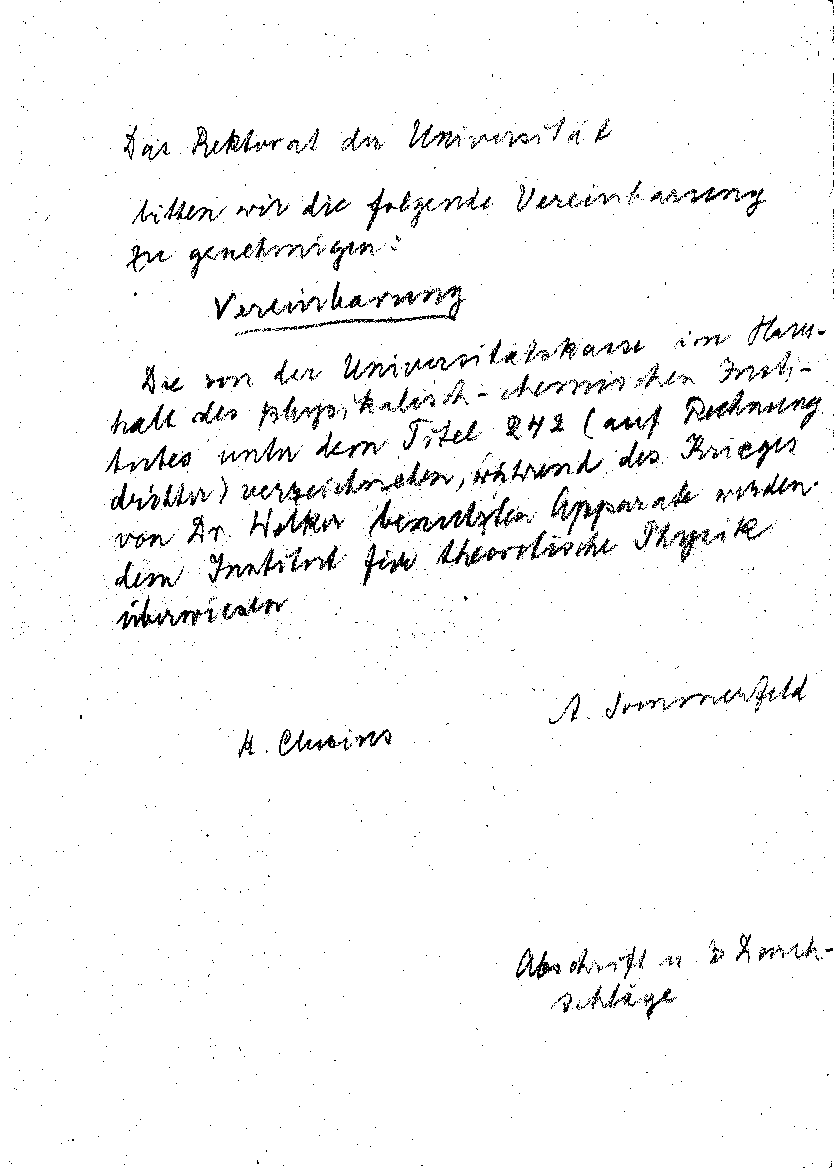 Das Rektorat der Universität
bitten wir die folgende Vereinbarung
zu genehmigen:
Vereinbarung
Die von der Universitätskasse im Haus-
halt des physikalisch-chemischen Insti-
tutes unter dem Titel 242 (auf Rechnung
dritter) verzeichneten, während des Krieges
von Dr. Welker benutzten Apparate werden
dem Institut für theoretische Physik
überwiesen
K. Clusius
A. Sommerfeld
Abschrift u 3 Durch-
schläge